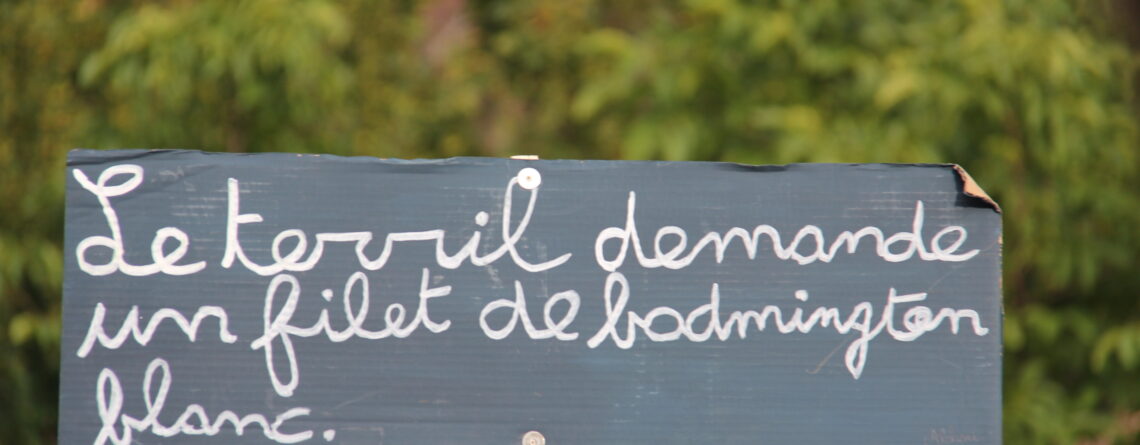 Le terril demande
un filet de badmington
blanc.